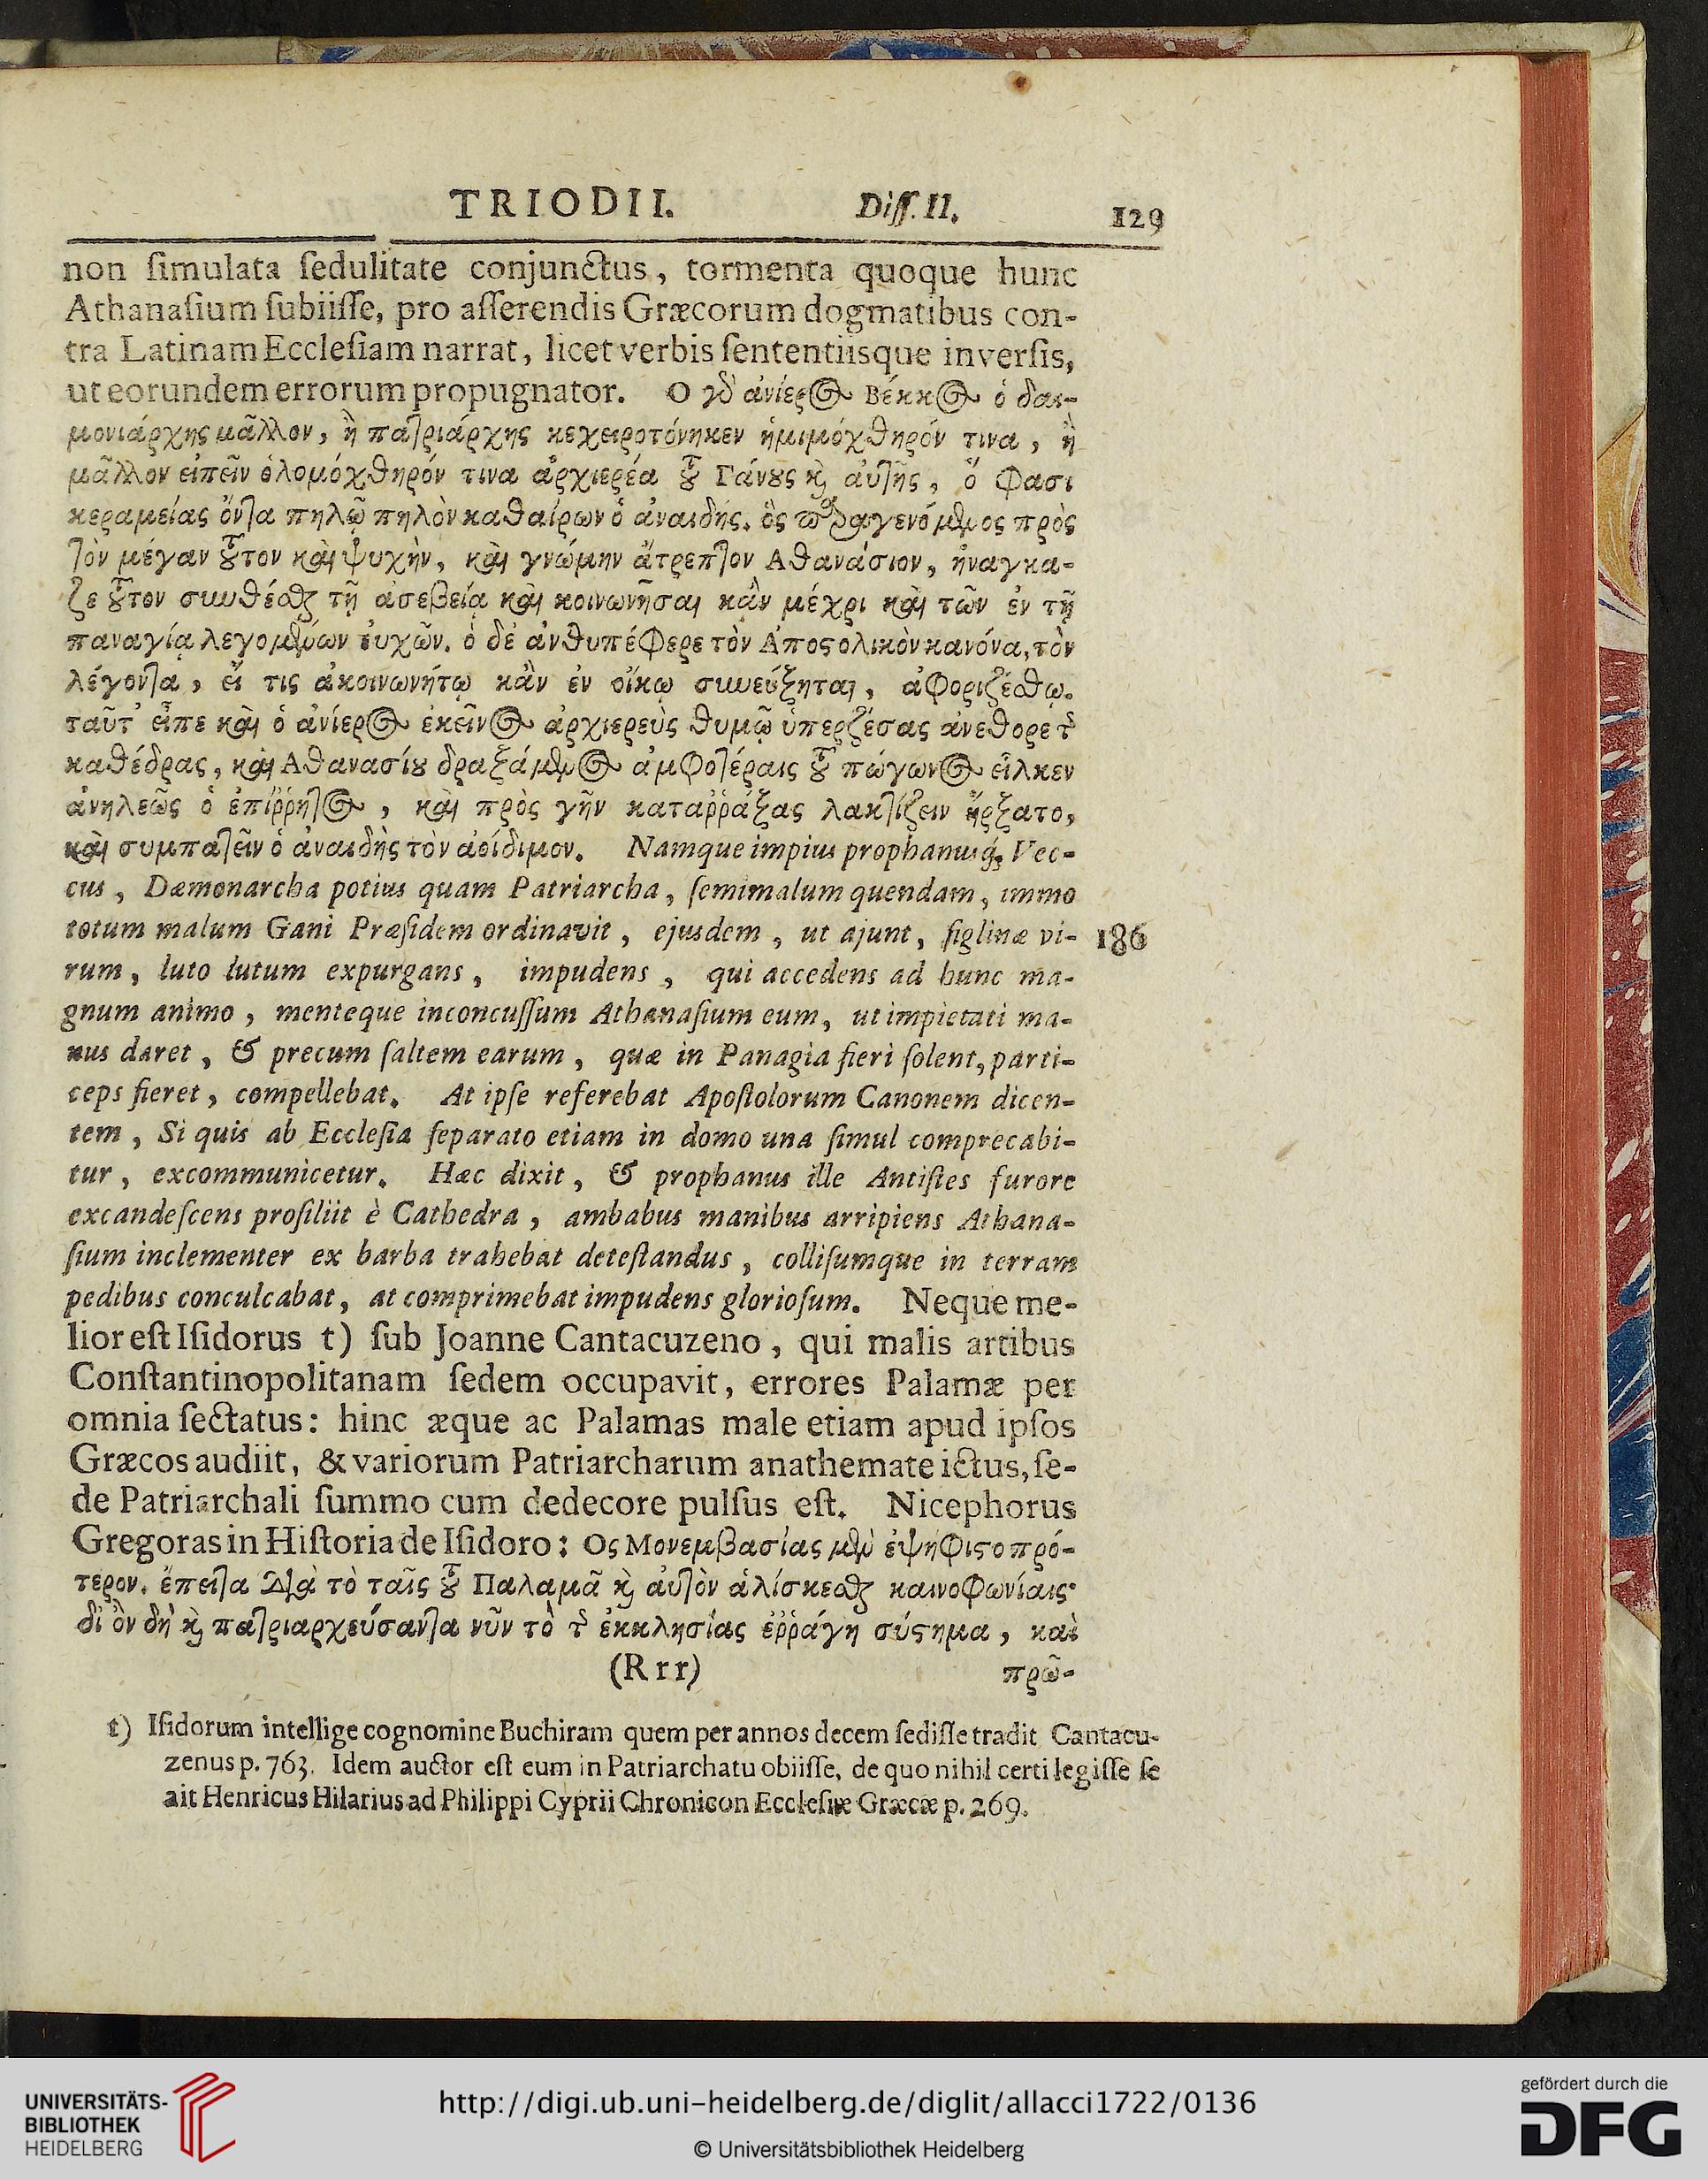 TRIODII. Diſſ. II. 129
non ſimulata ſedulitate conjunctus, tormenta quoque hunc
Athanaſium ſubiiſſe, pro aſſerendis Græcorum dogmatibus con-
tra Latinam Eccleſiam narrat, licet verbis ſententiisque inverſis,
ut eorundem errorum propugnator. Ο γδ ἀνίερος Βέκκος ὁ δαι-
μονιάρχης μᾶλλον, ἢ πατριάρχης κεχειροτόνηκεν ἡμιμόχθηρόν τινα, ἢ
μᾶλλον εἰπεῖν ὁλομόχθηρόν τινα ἀρχιερέα τȣ͂ Γάνȣς κỳ αὐτῆς, ὅ φασι
κεραμείας ὄντα πηλῷ πηλὸν καθαίρων ὁ ἀναιδής. ὃς παραγενόμενος πρὸς
τὸν μέγαν τȣ͂τον καὶ ψυχὴν, καὶ γνώμην ἄτρεπτον Αθανάσιον, ἠναγκα-
ζε τȣ͂τον συνθέσθαι τῇ ἀσεβείᾳ καὶ κοινωνῆσαι κἂν μέχρι καὶ τῶν ἐν τῇ
παναγίᾳ λεγομένων εὐχῶν. ὁ δὲ ἀνθυπέφερε τὸν Ἀποϛολικὸν κανόνα, τὸν
λέγοντα, εἴ τις ἀκοινωνήτῳ κἂν ἐν οἴκῳ συνεύξηται, ἀφοριζέσθω.
ταῦτ' εἶπε καὶ ὁ ἀνίερος ἐκεῖνος ἀρχιερεὺς θυμῷ ὑπερζέσας ἀνέθορε τῆς
καθέδρας, καὶ Αθανασίȣ δραξάμενος ἀμφοτέραις τȣ͂ πώγωνος εἷλκεν
ἀνηλεῶς ὁ ἐπίῤῥητος, καὶ πρὸς γῆν καταῤῥάξας λακτίζειν ἤρξατο,
καὶ συμπατεῖν ὁ ἀναιδὴς τὸν ἀοίδιμον. Namque impius prophanusq; Vec-
cus, Dæmonarcha potius quam Patriarcha, ſemimalum quendam, immo
totum malum Gani Præſidem ordinavit, ejusdem, ut ajunt, figlinæ vi- 186
rum, luto lutum expurgans, impudens, qui accedens ad hunc ma-
gnum animo, menteque inconcuſſum Athanaſium eum, ut impietati ma-
nus daret, & precum ſaltem earum, quæ in Panagia fieri ſolent, parti-
ceps fieret, compellebat. At ipſe referebat Apoſtolorum Canonem dicen-
tem, Si quis ab Eccleſia ſeparato etiam in domo una ſimul comprecabi-
tur, excommunicetur. Hæc dixit, & prophanus ille Antiſtes furore
excandeſcens proſiliit è Cathedra, ambabus manibus arripiens Athana-
ſium inclementer ex barba trahebat deteſtandus, colliſumque in terram
pedibus conculcabat, at comprimebat impudens glorioſum. Neque me-
lior eſt Iſidorus t) ſub Joanne Cantacuzeno, qui malis artibus
Conſtantinopolitanam ſedem occupavit, errores Palamæ per
omnia ſectatus: hinc æque ac Palamas male etiam apud ipſos
Græcos audiit, & variorum Patriarcharum anathemate ictus, ſe-
de Patriarchali ſummo cum dedecore pulſus eſt. Nicephorus
Gregoras in Hiſtoria de Iſidoro: Ος Μονεμβασίας μὲν ἐψήφιϛο πρό-
τερον. ἔπειτα διὰ τὸ ταῖς τȣ͂ Παλαμᾶ κỳ αὐτὸν ἁλίσκεσθαι καινοφωνίαις·
δι ὃν δὴ κỳ πατριαρχεύσαντα νῦν τὸ τῆς ἐκκλησίας ἐῤῥάγη σύϛημα, καὶ
(Rrr) πρῶ-
t) Iſidorum intellige cognomine Buchiram quem per annos decem ſediſſe tradit Cantacu-
zenus p. 763. Idem auctor eſt eum in Patriarchatu obiiſſe, de quo nihil certi legiſſe ſe
ait Henricus Hilarius ad Philippi Cyprii Chronicon Eccleſiæ Græcæ p. 269.
UNIVERSITÄTS-
BIBLIOTHEK
HEIDELBERG
http://digi.ub.uni-heidelberg.de/diglit/allacci1722/0136
© Universitätsbibliothek Heidelberg
gefördert durch die
DFG